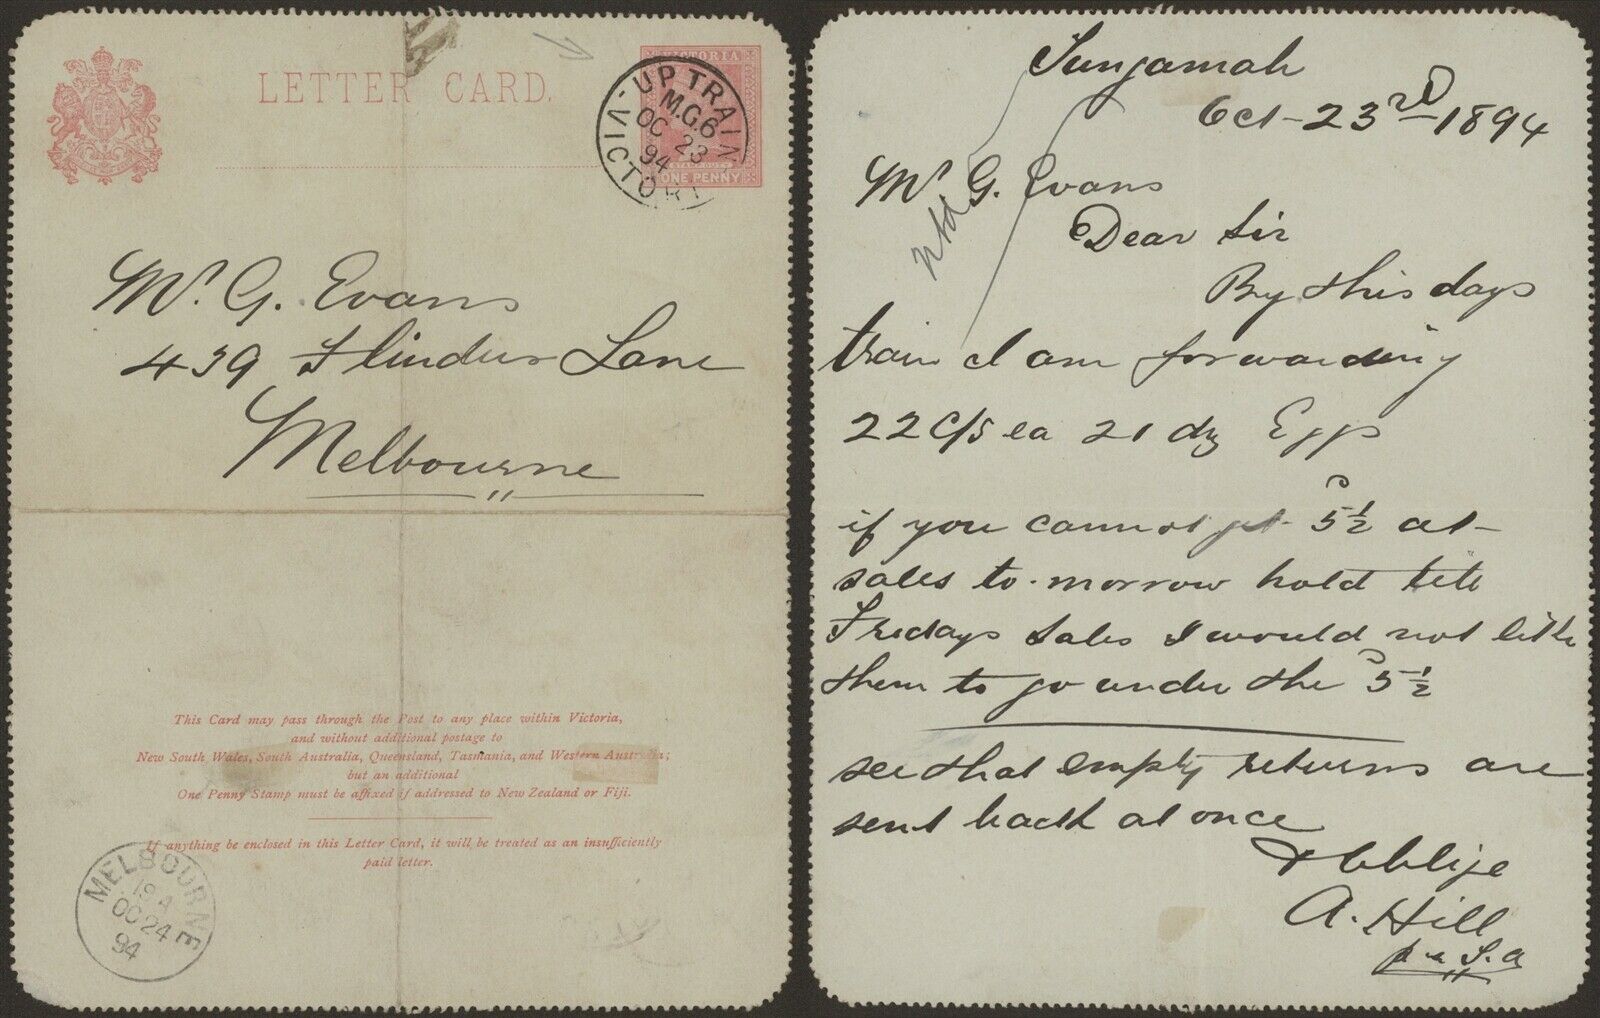 LETTER CARD.
VICTORIA
ONE PENNY
UP TRAIN
M.G.6
OC 23
94
VICTORI
Mr. G. Evans
439 Flinders Lane
Melbourne
This Card may pass through the Post to any place within Victoria,
and without additional postage to
New South Wales, South Australia, Queensland, Tasmania, and Western Australia;
but an additional
One Penny Stamp must be affixed if addressed to New Zealand or Fiji.
If anything be enclosed in this Letter Card, it will be treated as an insufficiently
paid letter.
MELBOURNE
OC 24
94
Tungamah
Oct-23rd-1894
Mr G. Evans
Dear Sir
By this days
train I am forwarding
22 C/s ea 21 dz Eggs
if you cannot get 5½ at
sales to-morrow hold till
Fridays sales I would not like
them to go under the 5½
see that empty returns are
sent back at once
& oblige
A. Hill